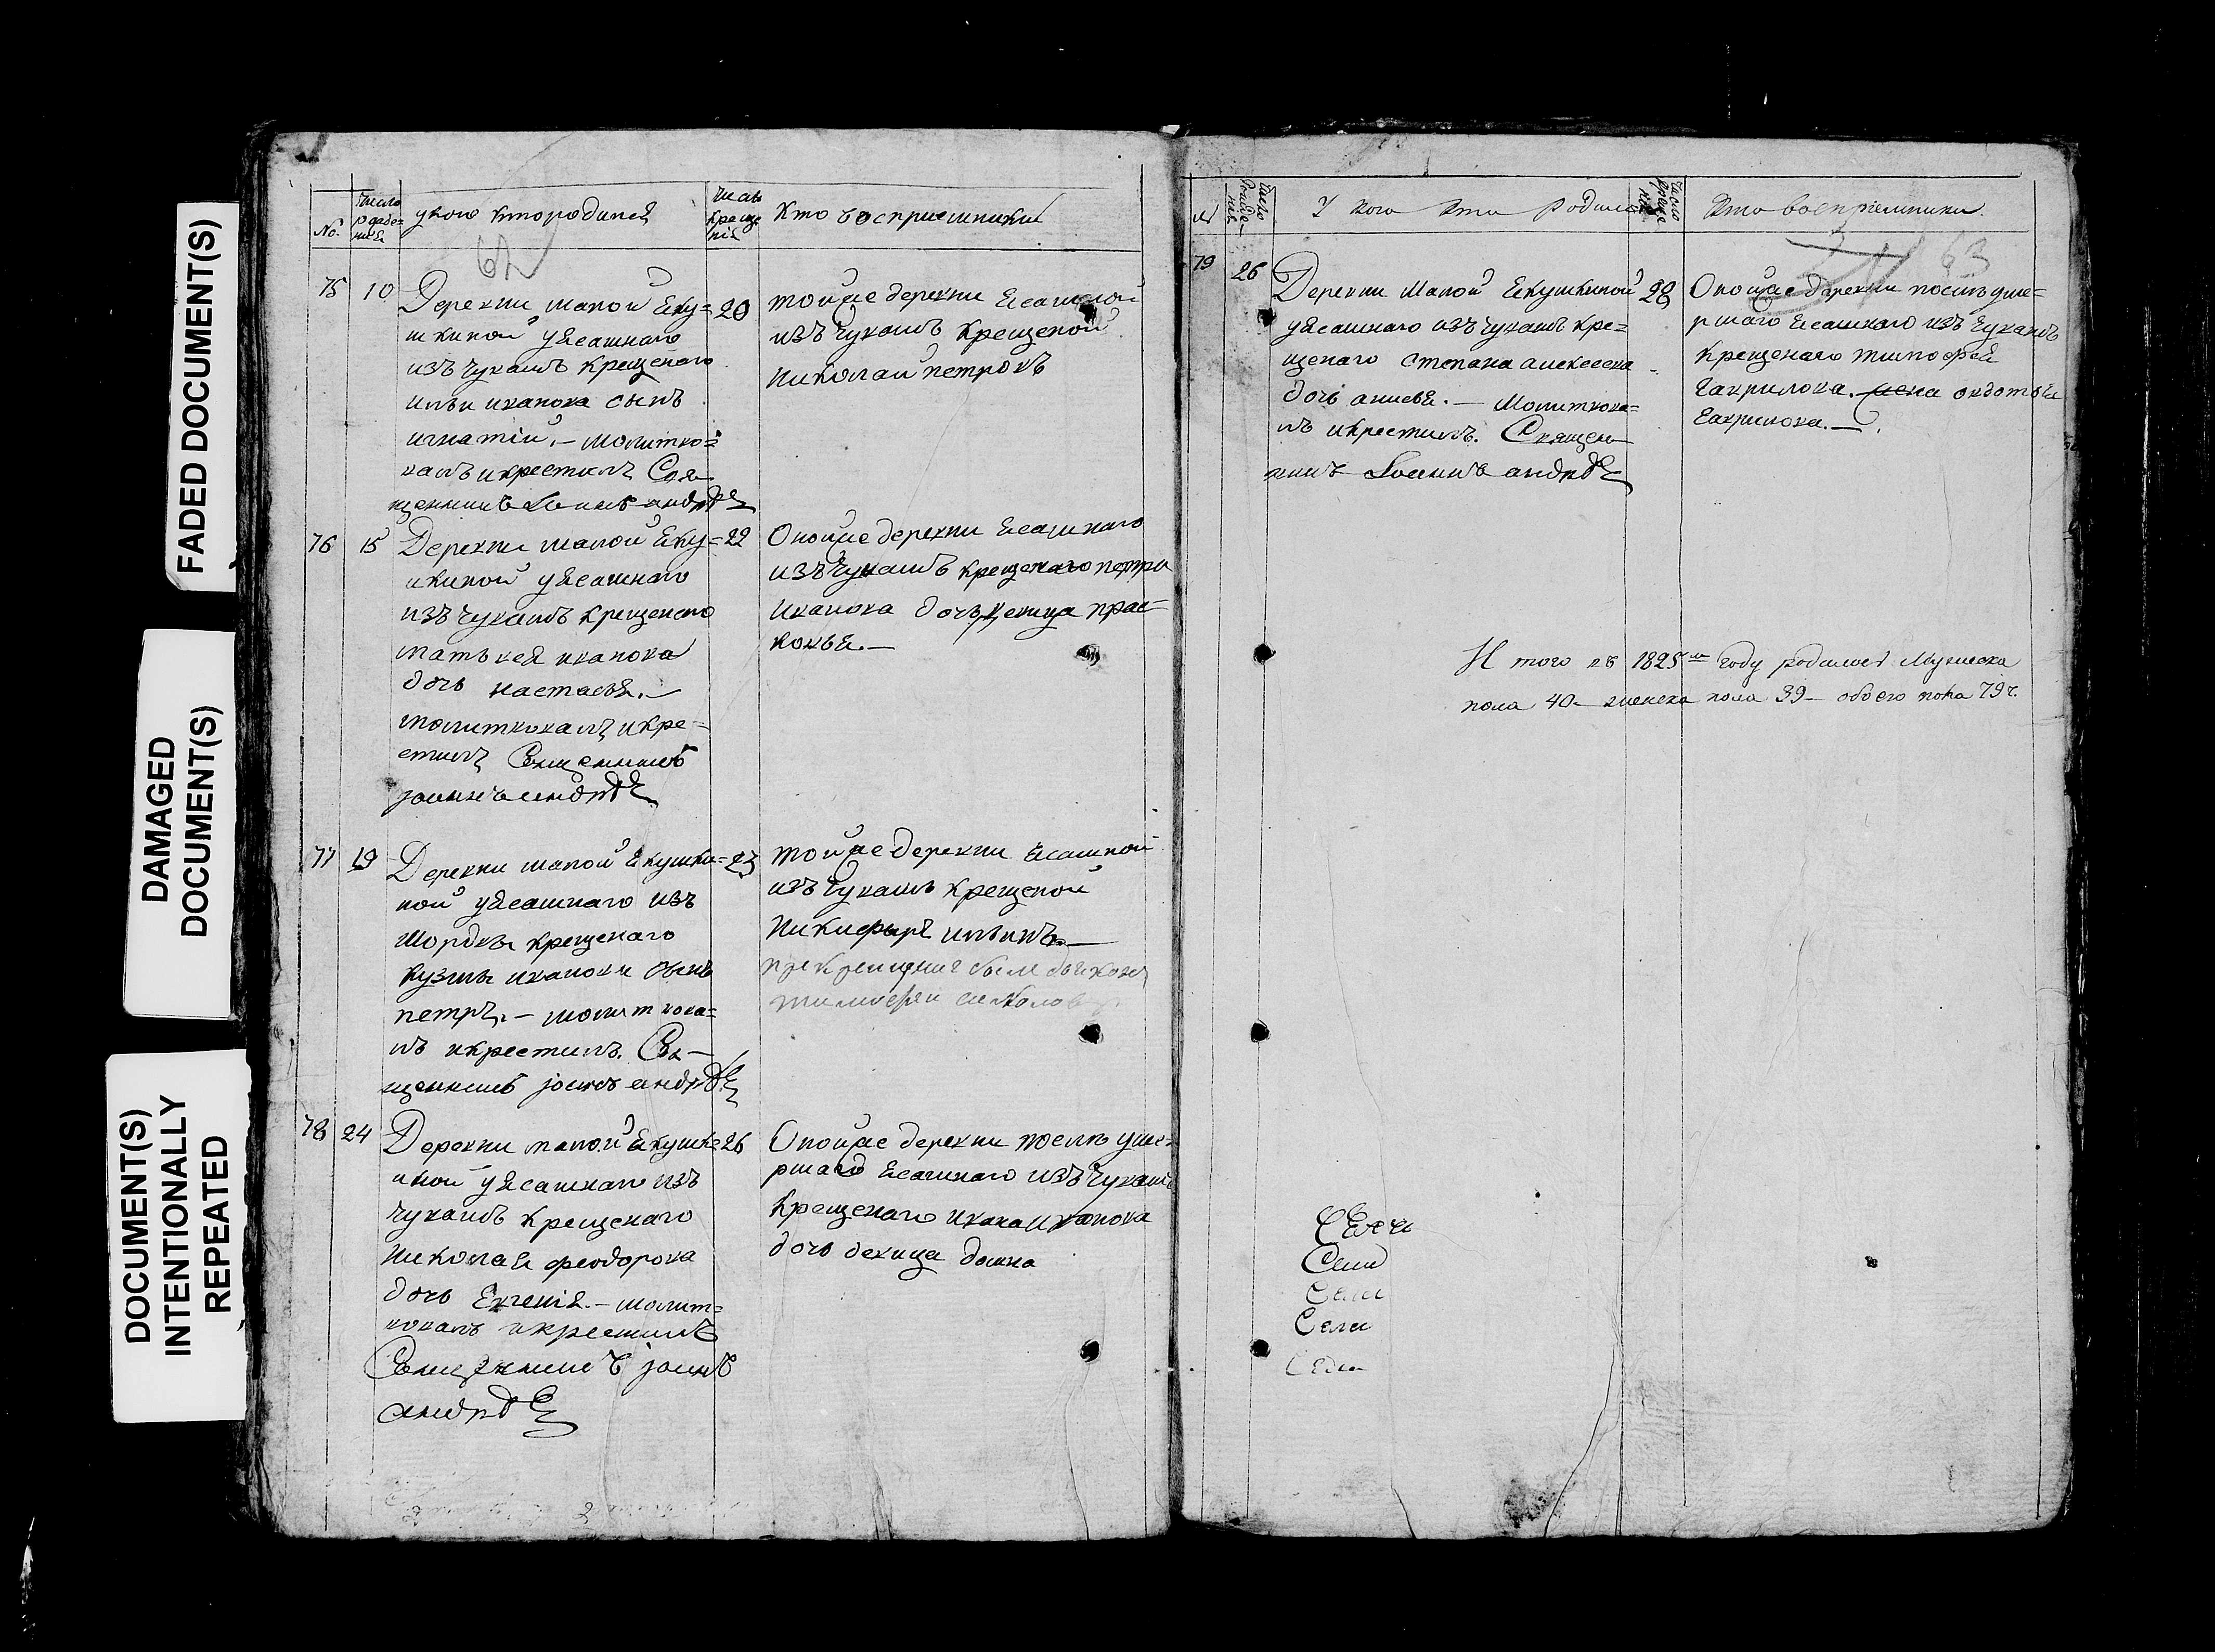 FADED DOCUMENT(S)
DAMAGED
DOCUMENT(S)
DOCUMENT(S)
INTENTIONALLY
REPEATED
No.
Число рожде-
ния
у кого кто родился
Число
креще
нiя
Кто восприемники
62
75 10
Деревни малой Яку=
шкиной уясашнаго
изъ чувашъ крещенаго
ильи иванова сынъ
игнатiй. – молитво=
валъ и крестилъ Свя
щенникъ Iоаннъ андр
20
тойже деревни ясашной
изъ чувашъ крещеной
николай петровъ
76 15
Деревни малой Яку=
шкиной уясашнаго
изъ чувашъ крещенаго
матвея иванова
дочь настасья. –
молитвовалъ и кре=
стилъ Священникъ
iоаннъ андр
22
Оной же деревни ясашнаго
изъ чувашъ крещенаго петра
иванова дочь девица прас=
ковья. –
77 19
Деревни малой Якушки=
ной уясашнаго изъ
Мордвы крещенаго
кузмы иванова сынъ
петръ. – молитвова=
лъ и крестилъ. Свя–
щенникъ iоаннъ андр
23
тойже деревни ясашной
изъ чувашъ крещеной
Никифоръ ильинъ. –
при крещенiе были дьяконъ
78 24
Деревни малой Якушк=
иной уясашнаго изъ
чувашъ крещенаго
Николая феодорова
дочь Евгенiя. – молит=
вовалъ и крестилъ
Священникъ iоаннъ
андр
26
Оной же деревни уме=
ршаго ясашнаго изъ чувашъ
крещенаго ивана иванова
дочь девица домна
Число
Рожде–
нiя
У кого кто родился
Число
Креще
нiя
Кто восприемники.
63
79 26
Деревни Малой Якушкиной
уясашнаго изъ чувашъ кре=
щенаго степана алексеева
дочь анисья. – Молитвова=
лъ и крестилъ. Священ–
никъ Iоаннъ андр
28
Оной же деревни уме=
ршаго ясашнаго изъ чувашъ
крещенаго тимофея
гаврилова. жена авдотья
Гаврилова. –
Итого въ 1825м году родилось Мужеска
пола 40– женска пола 39– обоего пола 79 ч.
Села
Села